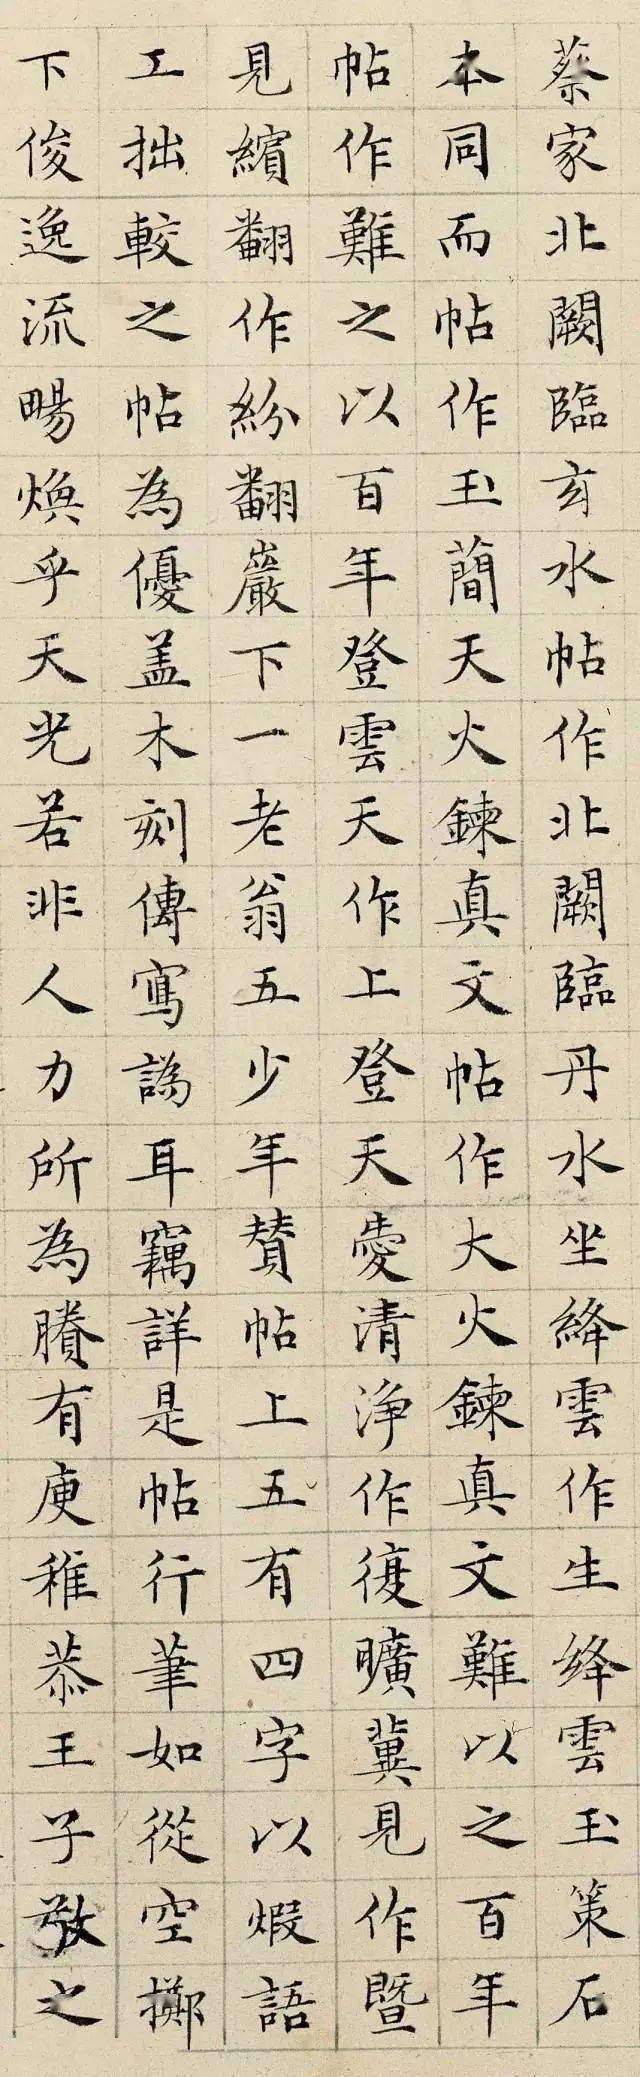 蔡家北闕臨玄水帖作北闕臨丹水坐絳雲作生絳雲玉策石
本同而帖作玉簡天火鍊真文帖作大火鍊真文難以之百年
帖作難之以百年登雲天作上登天愛清淨作復曠冀見作暨
見繽翻作紛翻巖下一老翁五少年賛帖上五有四字以煆語
工拙較之帖為優盖木刻傳寫譌耳竊詳是帖行筆如從空擲
下俊逸流暘煥乎天光若非人力所為賸有庾稚恭王子敬之